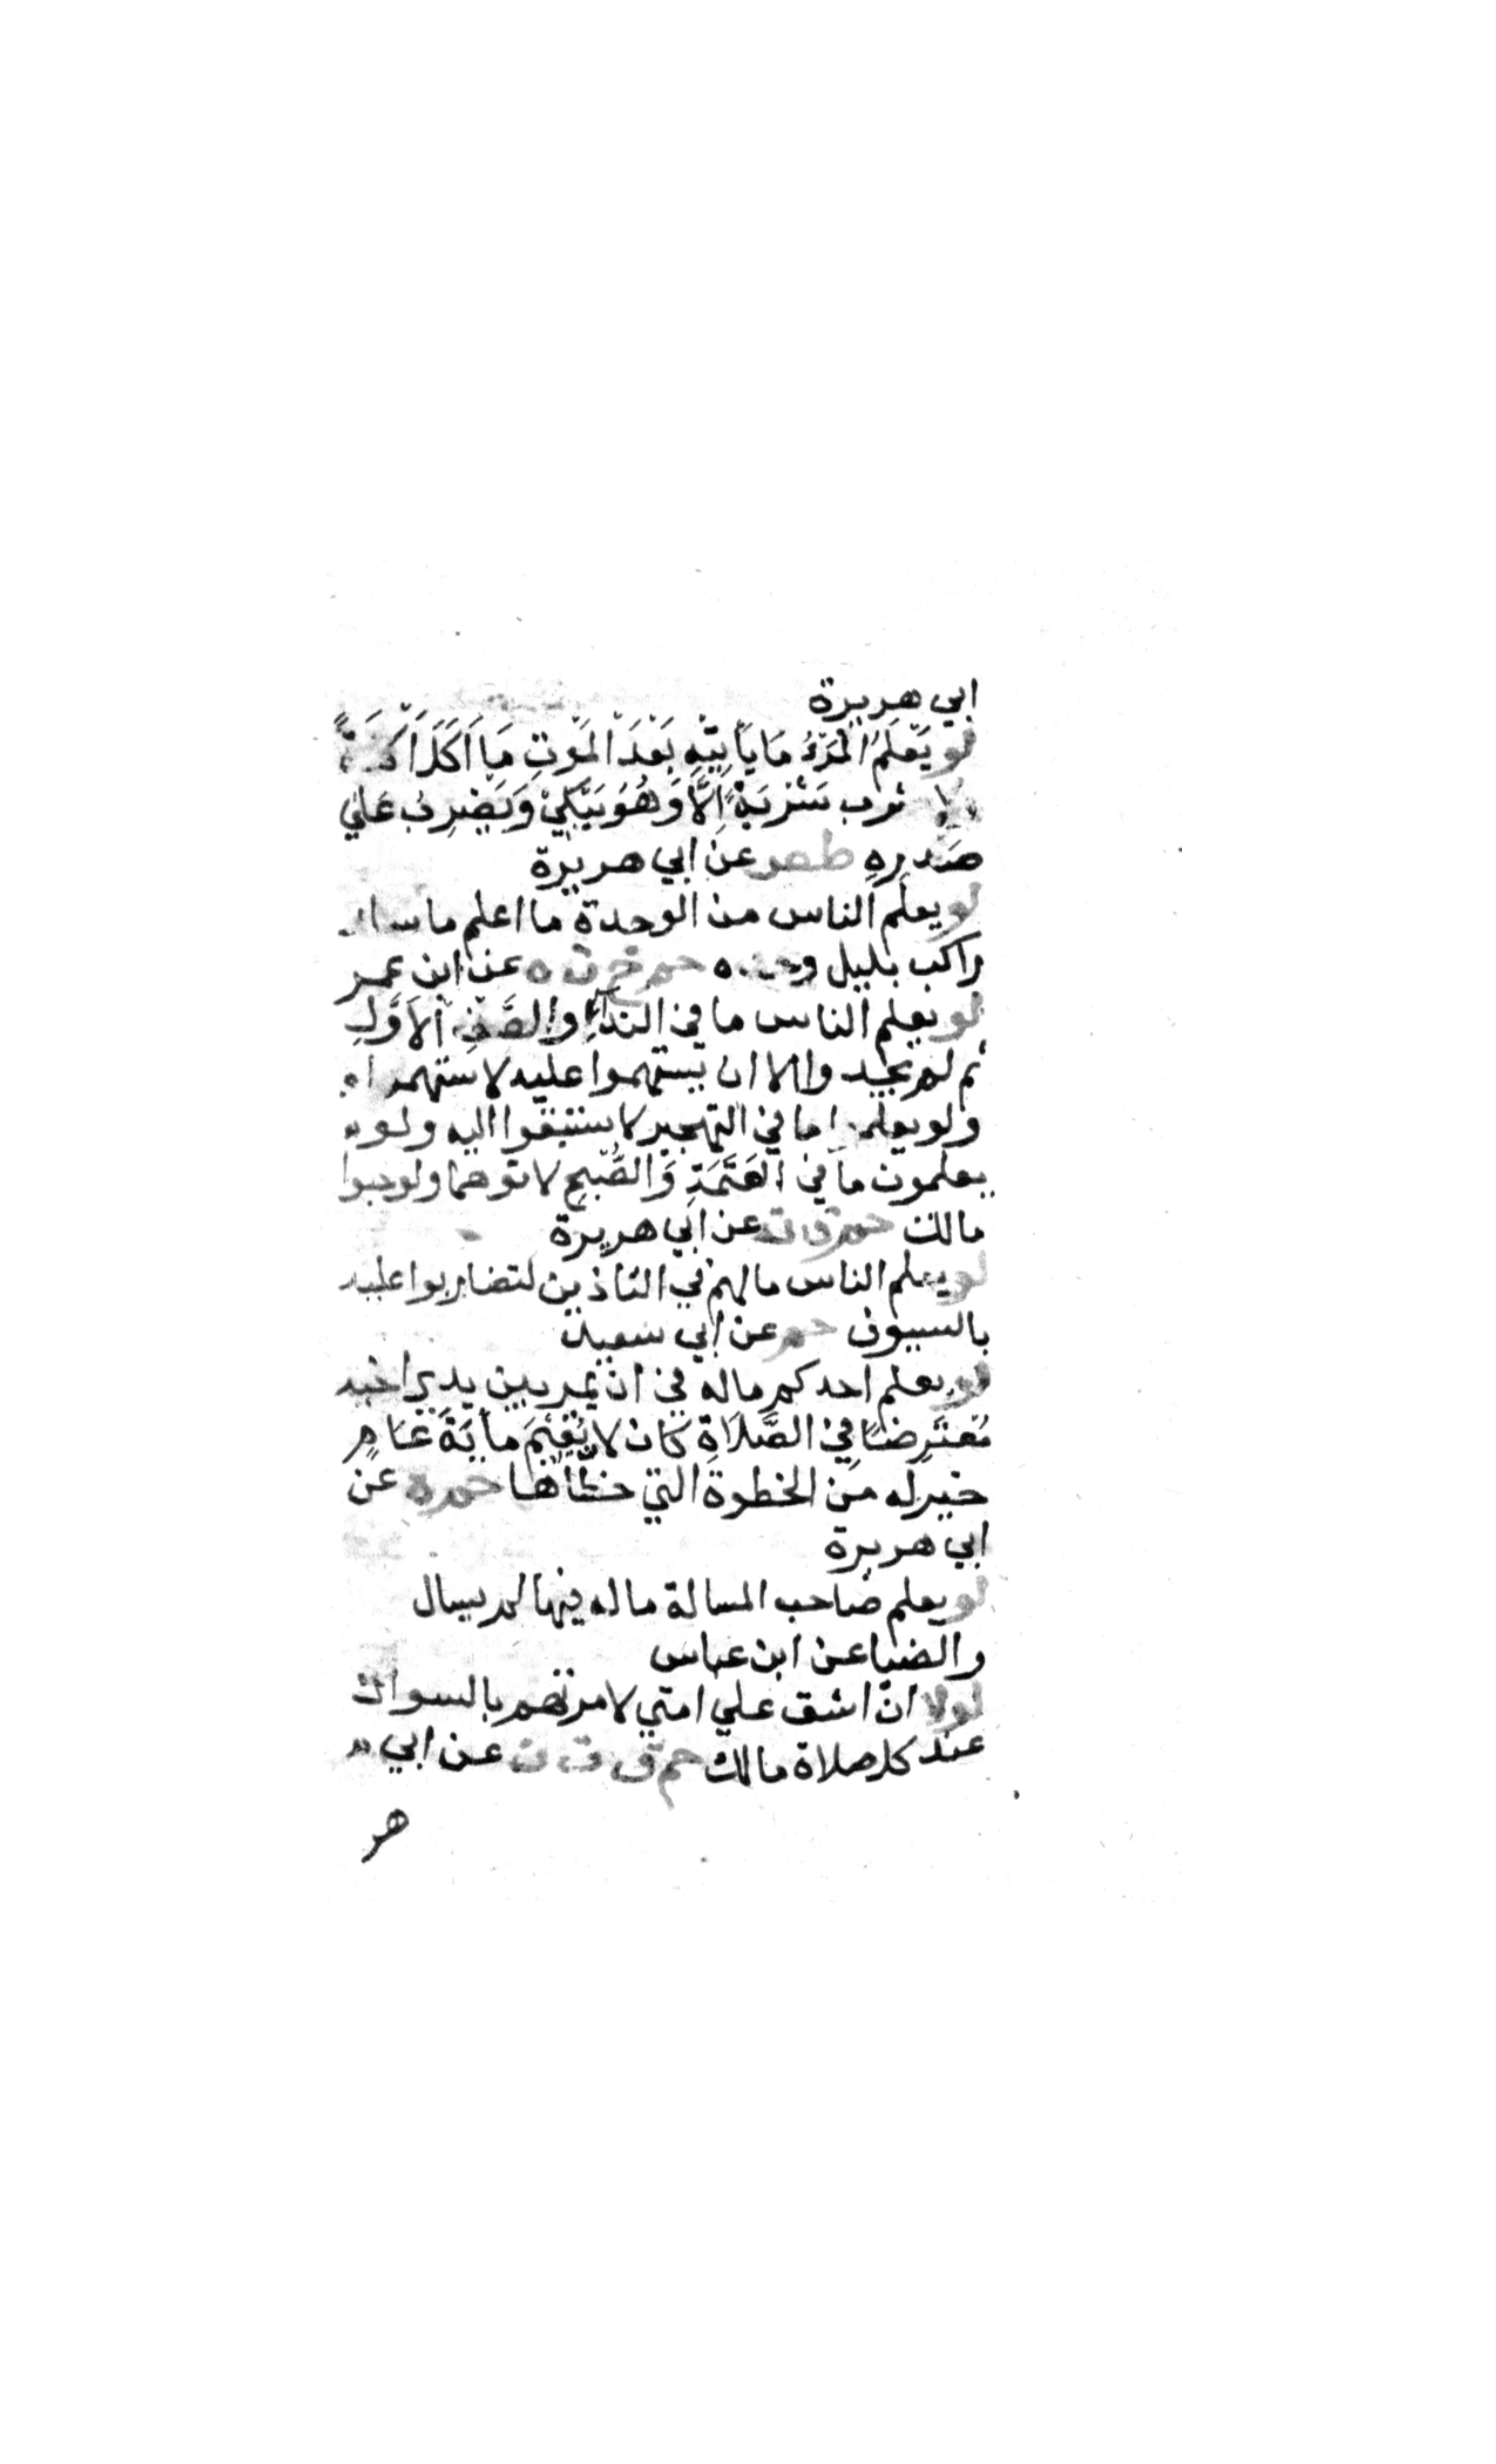 ابي هريرة
لو يَعْلَمُ المَرْءُ مَا يَأْتِيْهِ بَعْدَ المَوْتِ مَا اَكَلَ اَكْلَةً
ولا شرب شَرْبَةً اِلَّا وَهُوَ يَبْكِيْ وَيَضْرِبُ عَلَيْ
صَدْرِهِ طص عن ابي هريرة
لو يعلم الناس من الوحدة ما اعلم ما سار
راكب بليل وحده حم خ ت ه عن ابن عمر
لو يعلم الناس ما في الندآءِ والصَّفِّ الاَوَّلِ
ثم لم يجدوا الا ان يستهموا عليه لاستهموا
ولو يعلموا ما في التهجير لاستبقوا اليه ولو
يعلمون ما في العَتَمَةِ وَالصُّبْحِ لاتوهما ولو حبوا
مالك حم ق ن عن ابي هريرة
لو يعلم الناس ما لهم في التاذين لتضاربوا عليه
بالسيوف حم عن ابي سعيد
لو يعلم احدكم ما له في ان يمر بين يدي اخيه
مُعْتَرِضًا في الصَّلَاةِ كان لَا يُقِيْمَ مأيَةَ عَامٍ
خير له من الخطوة التي خطَّاهَا حم ه عن
ابي هريرة
لو يعلم صاحب المسالة ما له فيها لم يسال
والضيا عن ابن عباس
لولا ان اشق علي امتي لامرتهم بالسواك
عند كل صلاة مالك حم ق ت ن عن ابي
هر